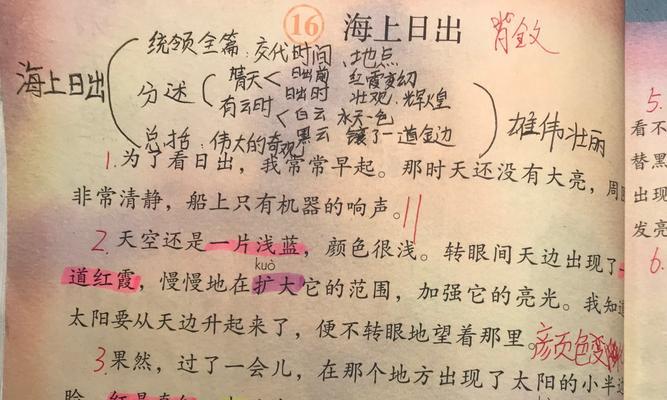 16 海上日出 肖金文
统领全篇：交代时间、地点
晴天 日出前 红霞变幻
海上日出 分述 日出时 壮观.辉煌
有云时 白云 水天一色
总括：伟大的奇观 黑云 镶了一道金边 雄伟壮丽
1.为了看日出，我常常早起。那时天还没有大亮，周
非常清静，船上只有机器的响声。||
2.天空还是一片浅蓝，颜色很浅。转眼间天边出现了一
kuò
道红霞，慢慢地在扩大它的范围，加强它的亮光。我知道
太阳要从天边升起来了，便不转眼地望着那里。颜色变
3.果然，过了一会儿，在那个地方出现了太阳的小半边
脸，红是真红
5.
看不
替黑
出现
发亮
6.